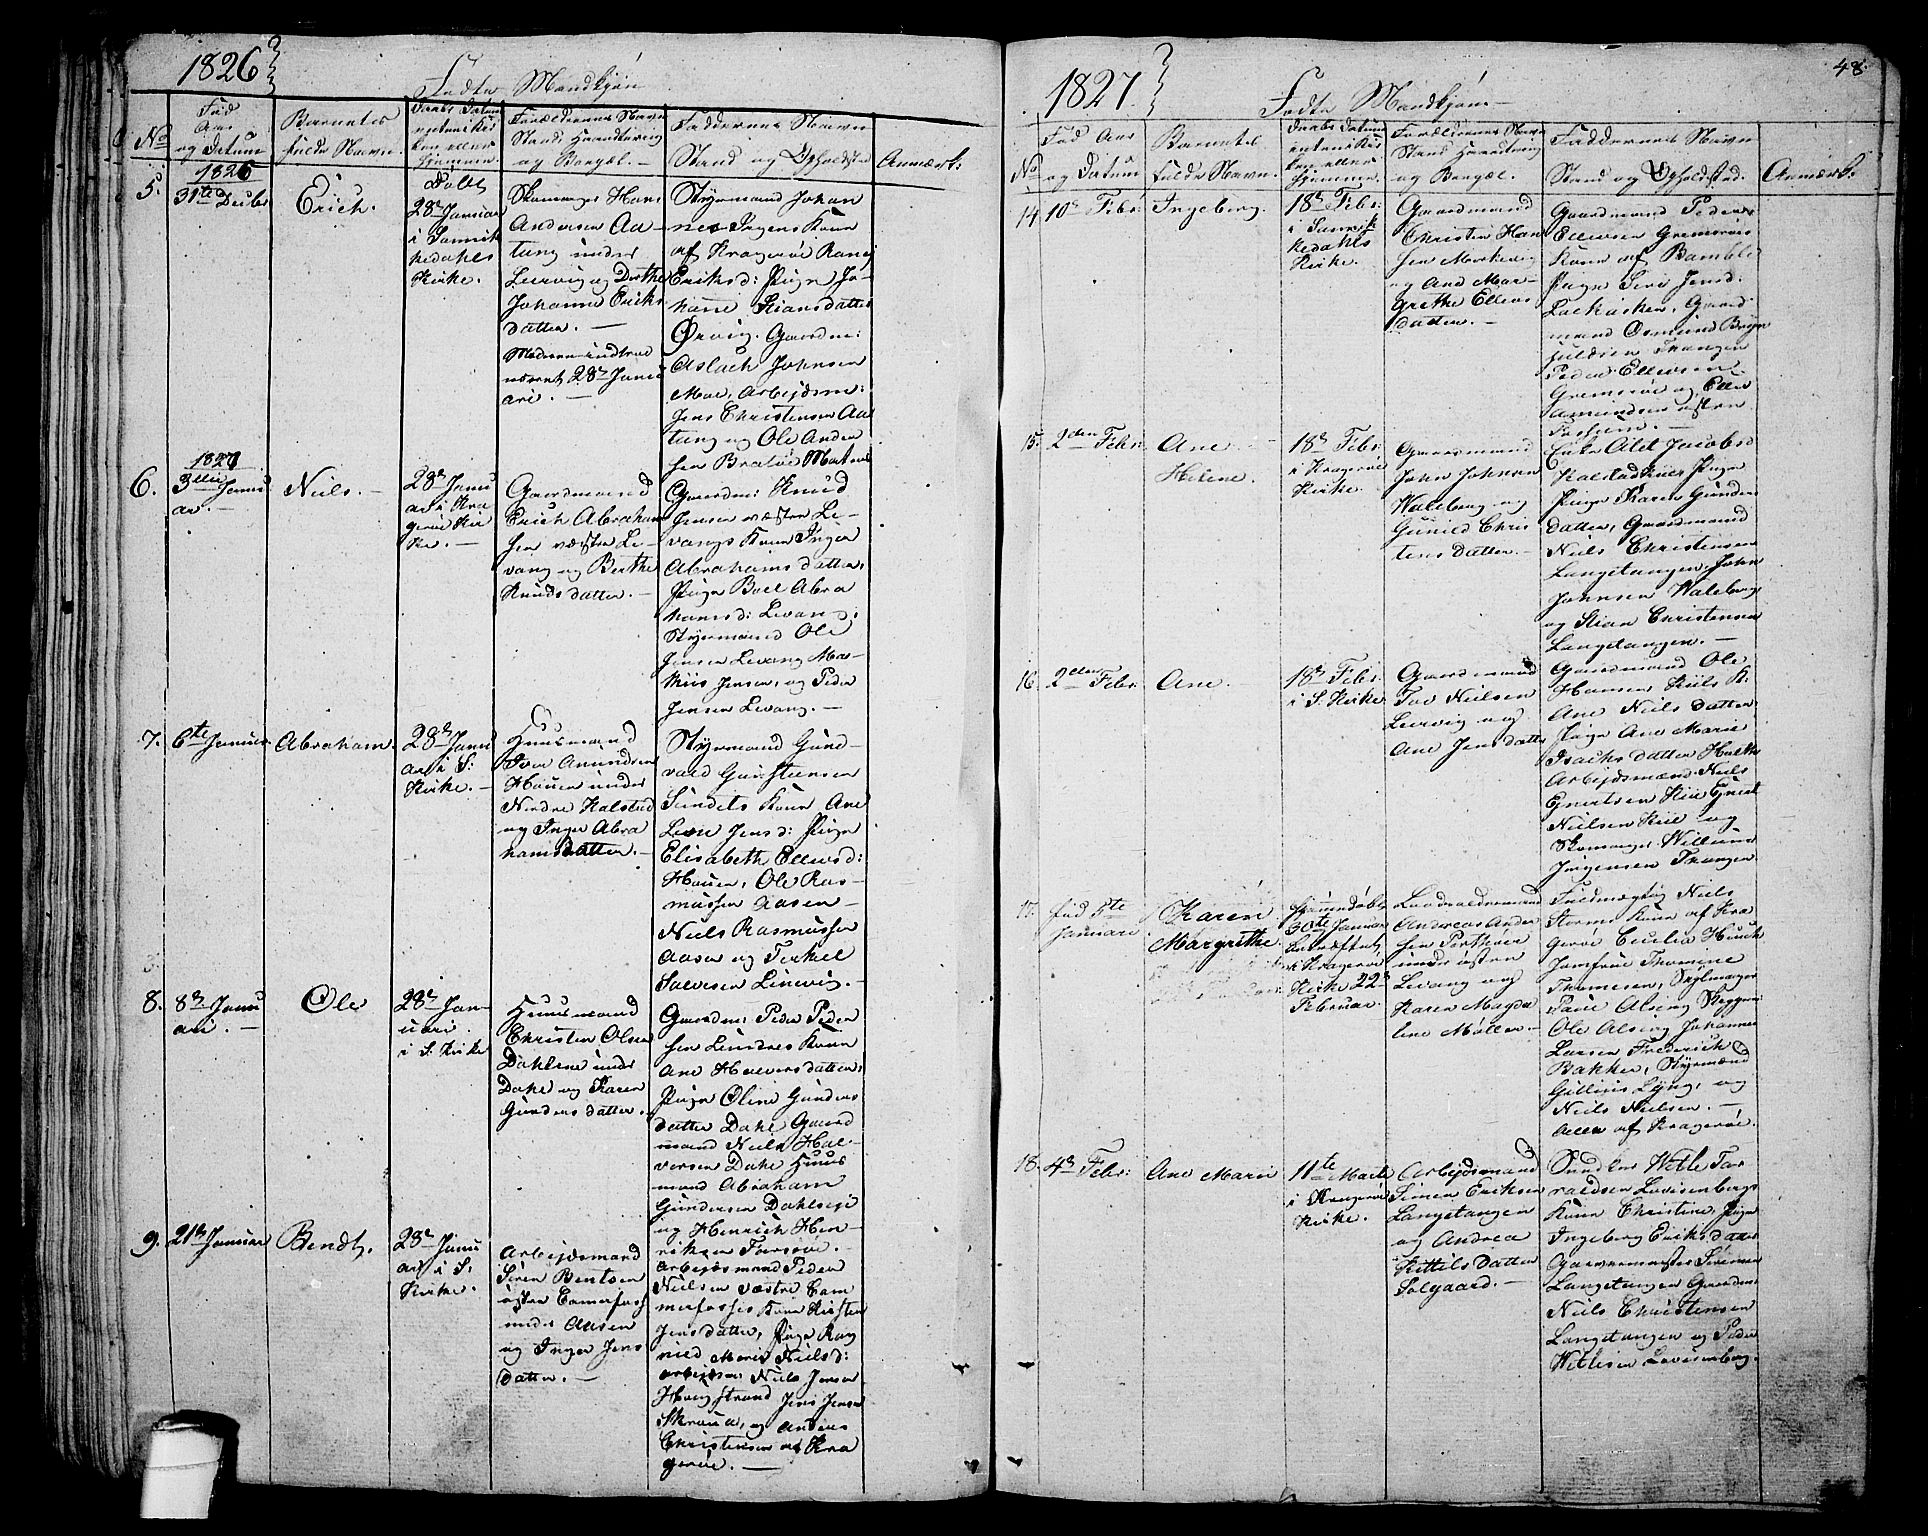 1826
Fødte Mandkjøn
No
Fød Aar og Datum
Barnets fulde Navn.
Daabs Datum enten i Kirken eller Hjemme
Forældrenes Navn Stand Handtering og Boepæl. —
Faddernes Navn Stand og Opholdsted
Anmærk:
5.
1826
31te Decbr
Erich.
Døbt
28de Januar
i Sannik
kedahls
Kirke.
Skomager Hans
Andersen Aa-
tang under
Leervig og Dorthe
Johanne Eriks
datter. —
Moderen indtrod
28de Janu
ari. —
Styrmand Johan
nes Jrgens Kone
af Kragerøe
Eriksd: Pige Jo-
hanne Kiansdatter
Ørvig. Gaardm:
Aslach Johnsen
Moe, Arbejdsm:
Jens Christensen Aa
tang og Ole Ander
sen Bratøe
6.
1827
3die Janu
ar. —
Niels. —
28de Janu
ar i Kra
gerøe Kir
ke. —
Gaardmand
Erich Abraham
sen væstre Le-
vang og Berthe
Knudsdatter. —
Gaardm: Knud
Jensen væstre Le-
vangs Kone Inger
Abrahamsdatter,
Pige Boel Abra
hamsd: Levang,
Styrmand Ole
Jensen Levang Mar-
kus Jensen, og Peder
Jensen Levang. —
7.
6te Januar
Abraham.
28de Janu
ar i S:
Kirke. —
Huusmand
Iver Amundsen
Houen under
Nedre Kalstad
og Inger Abra
hamsdatter. —
Styrmand Gund-
vald Gunstensen
Sundets Kone Ane
Lene Jensd: Pige
Elisabeth Ellevsd:
Houen, Ole Ras-
mussen Aasen —
Niels Rasmussen
Aasen og Terkel
Salvesen Linevig.
8.
8de Janu
ari. —
Ole
28de Jan-
uari.
i S. Kirke
Huusmand
Christen Olsen
Dahlene under
Dahl og Karen
Gunders datter. —
Gaardm: Peder Peder
sen Lindens Kone
Ane Halvorsdatter,
Pige Oline Gunders
datter Dahl Gaard
mand Niels Hal-
vorsen Dahl Huus
mand Abraham
Gundersen Dahlseje
og Henrich Hen-
riksen Farsøe. —
9.
21de Januar
Bendt.
28de Janu
ar i S:
Kirke. —
Arbejdsmand
Søren Bentsen
østre Camerfoss
under Aasen
og Inger Jens
datter. —
Arbejdsmand Peder
Nielsen væstre Cam
merfosses Kone Kirsten
Jensdatter, Pige Rag
nild Marie Nielsd:
Arbejdsm Niels Jensen
Haugstrand Jens Jensen
Skrøua, og Anders
Christensen af Kra
gerøe. —
1827
48.
Fødte Mandkjøn —
No
Fød Aar og Datum
Barnets fulde Navn.
Daabs Datum enten i Kirken eller Hjemme
Forældrenes Navn Stand Handtering og Boepæl. —
Faddernes Navn Stand og Opholdsted.
Anmærk:
14
10de Febr:
Ingeborg.
18de Febr:
i Sannik
kedahls
Kirke.
Gaardmand
Christen Han
sen
og Ane Mar-
grethe Ellevs
datter. —
Gaardmand Peder
Ellevsen Gromsøes
Kone af Bamble
Pige Siri Jensd:
Gaard
mand Osmund Bryn
julvsen Trangen
Peder Ellevsen
Gromsøe og Ellev
Amundsen østre
Fossum. —
15.
2den Febr:
Ane
Helene.
18de Febr:
i Kragerøe
Kirke.
Gaardmand
John Johnsen
Waleberg og
Gunild Chris
tensdatter. —
Enke Alet Jacobsd
Kalstadkiær Pige
Pige Karen Gunders
datter, Gaardmand
Niels Christensen
Langetangen, John
Johnsen Waleberg
og Kian Christensen
Langetangen. —
16.
2den Febr:
Ane. —
18de Febr:
i S. Kirke.
Gaardmand
Tov Nielsen
Leervig og
Ane Jensdatter
Gaardmand Ole
Hansen Kiils K:
Ane Nielsdatter
Pige Ane Marie
Isachsdatter
Arbejdsmænd Niels
Gjertsen Kiil Gjert
Nielsen Kiil og
Skomager Willum
Jørgensen Trangen
17.
fød 5te
Januari.
Karen
Margrethe.
Hjemmedøbt
30te Januar
bekræftet
i Kragerøe
Kirke 22de
Februar.
Andreas Ander
sen
under østre
Levang og
Karen Magda
lene Møller —
Fuldmægtig Niels
Storms Kone af Kra
gerøe Cecilia Huuk
Jomfrue Thomine
Thomesen, Sejlmager
Povel Alsing Skipper
Ole Alsing Johannes
Larsen Frederich
Bakker, Styrmænd
Gillius Lÿng, og
Niels Nielsen. —
Alle af Kragerøe.
18.
4de Febr:
Ane Marie
11te Marts
i Kragerøe
Kirke.
Arbejdsmand
Simen Eriksen
Langetangen
og Andrea
Kittelsdatter
Solgaard. —
Snedker Wetle Tor
valdsen Lovisenbergs
Kone Christine, Pige
Ingeborg Eriksdatter
Garvermester Simen
Langetangen Gaardm:
Niels Christensen
Langetangen og Peder
Wetlesen Lovisenberg.